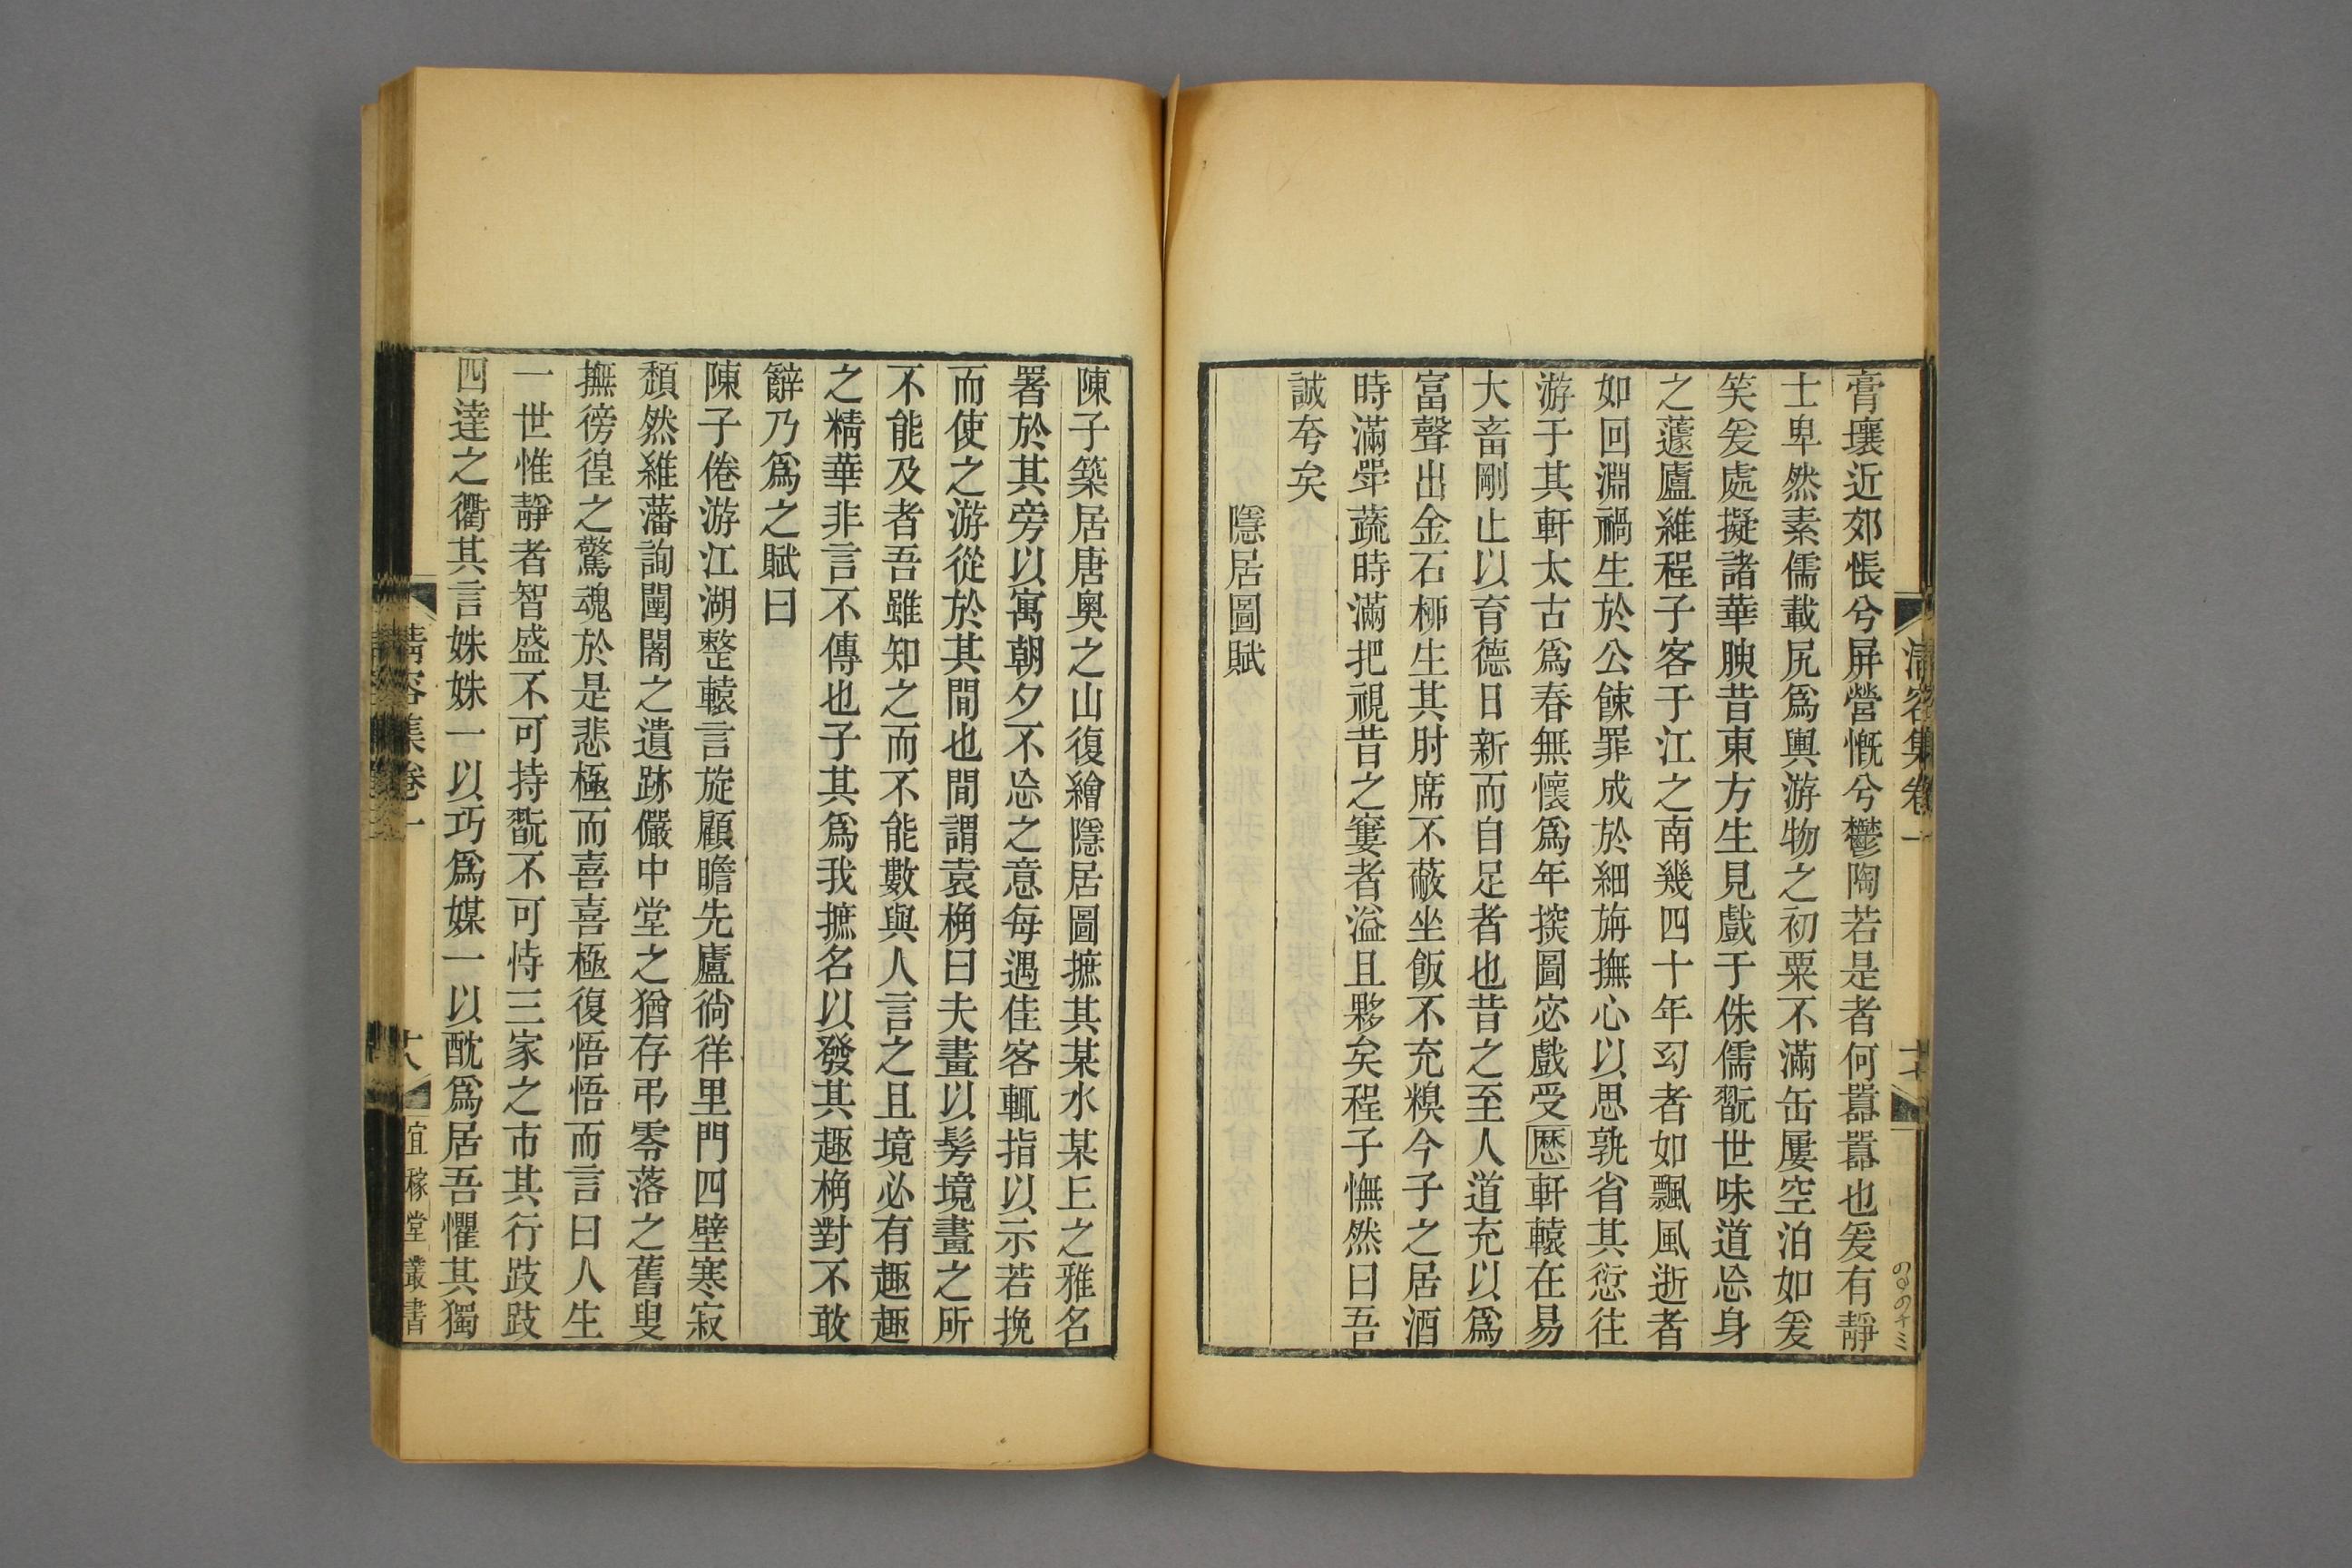 膏壤近郊悵兮屏營慨兮鬱陶若是者何囂囂也爰有靜
士卑然素儒載尻爲輿游物之初粟不滿缶屢空泊如爰
笑爰處擬諸華腴昔東方生見戲于侏儒翫世味道忩身
之蘧廬維程子客于江之南幾四十年㓜者如飄風逝者
如回淵禍生於公餗罪成於細旃撫心以思孰省其愆往
游于其軒太古爲春無懷爲年揬圖宓戲受歷軒轅在易
大畜剛止以育德日新而自足者也昔之至人道充以爲
富聲出金石柳生其肘席不蔽坐飯不充糗今子之居酒
時滿斝蔬時滿把視昔之窶者溢且夥矣程子憮然曰吾
誠夸矣
隱居圖賦
清容集卷一
十七
陳子築居唐奥之山復繪隱居圖摭其某水某丘之雅名
署於其旁以寓朝夕不忩之意每遇佳客輒指以示若挽
而使之游從於其間也間謂袁桷曰夫畫以髣境畫之所
不能及者吾雖知之而不能數與人言之且境必有趣趣
之精華非言不傳也子其爲我摭名以發其趣桷對不敢
辭乃爲之賦曰
陳子倦游江湖整轅言旋顧瞻先廬徜徉里門四壁寒寂
頽然維藩詢闉闍之遺跡儼中堂之猶存弔零落之舊叟
撫徬徨之驚魂於是悲極而喜喜極復悟悟而言曰人生
一世惟靜者智盛不可持翫不可恃三家之市其行跂跂
四達之衢其言姝姝一以巧爲媒一以酖爲居吾懼其獨
清容集卷一
十八
宜稼堂叢書